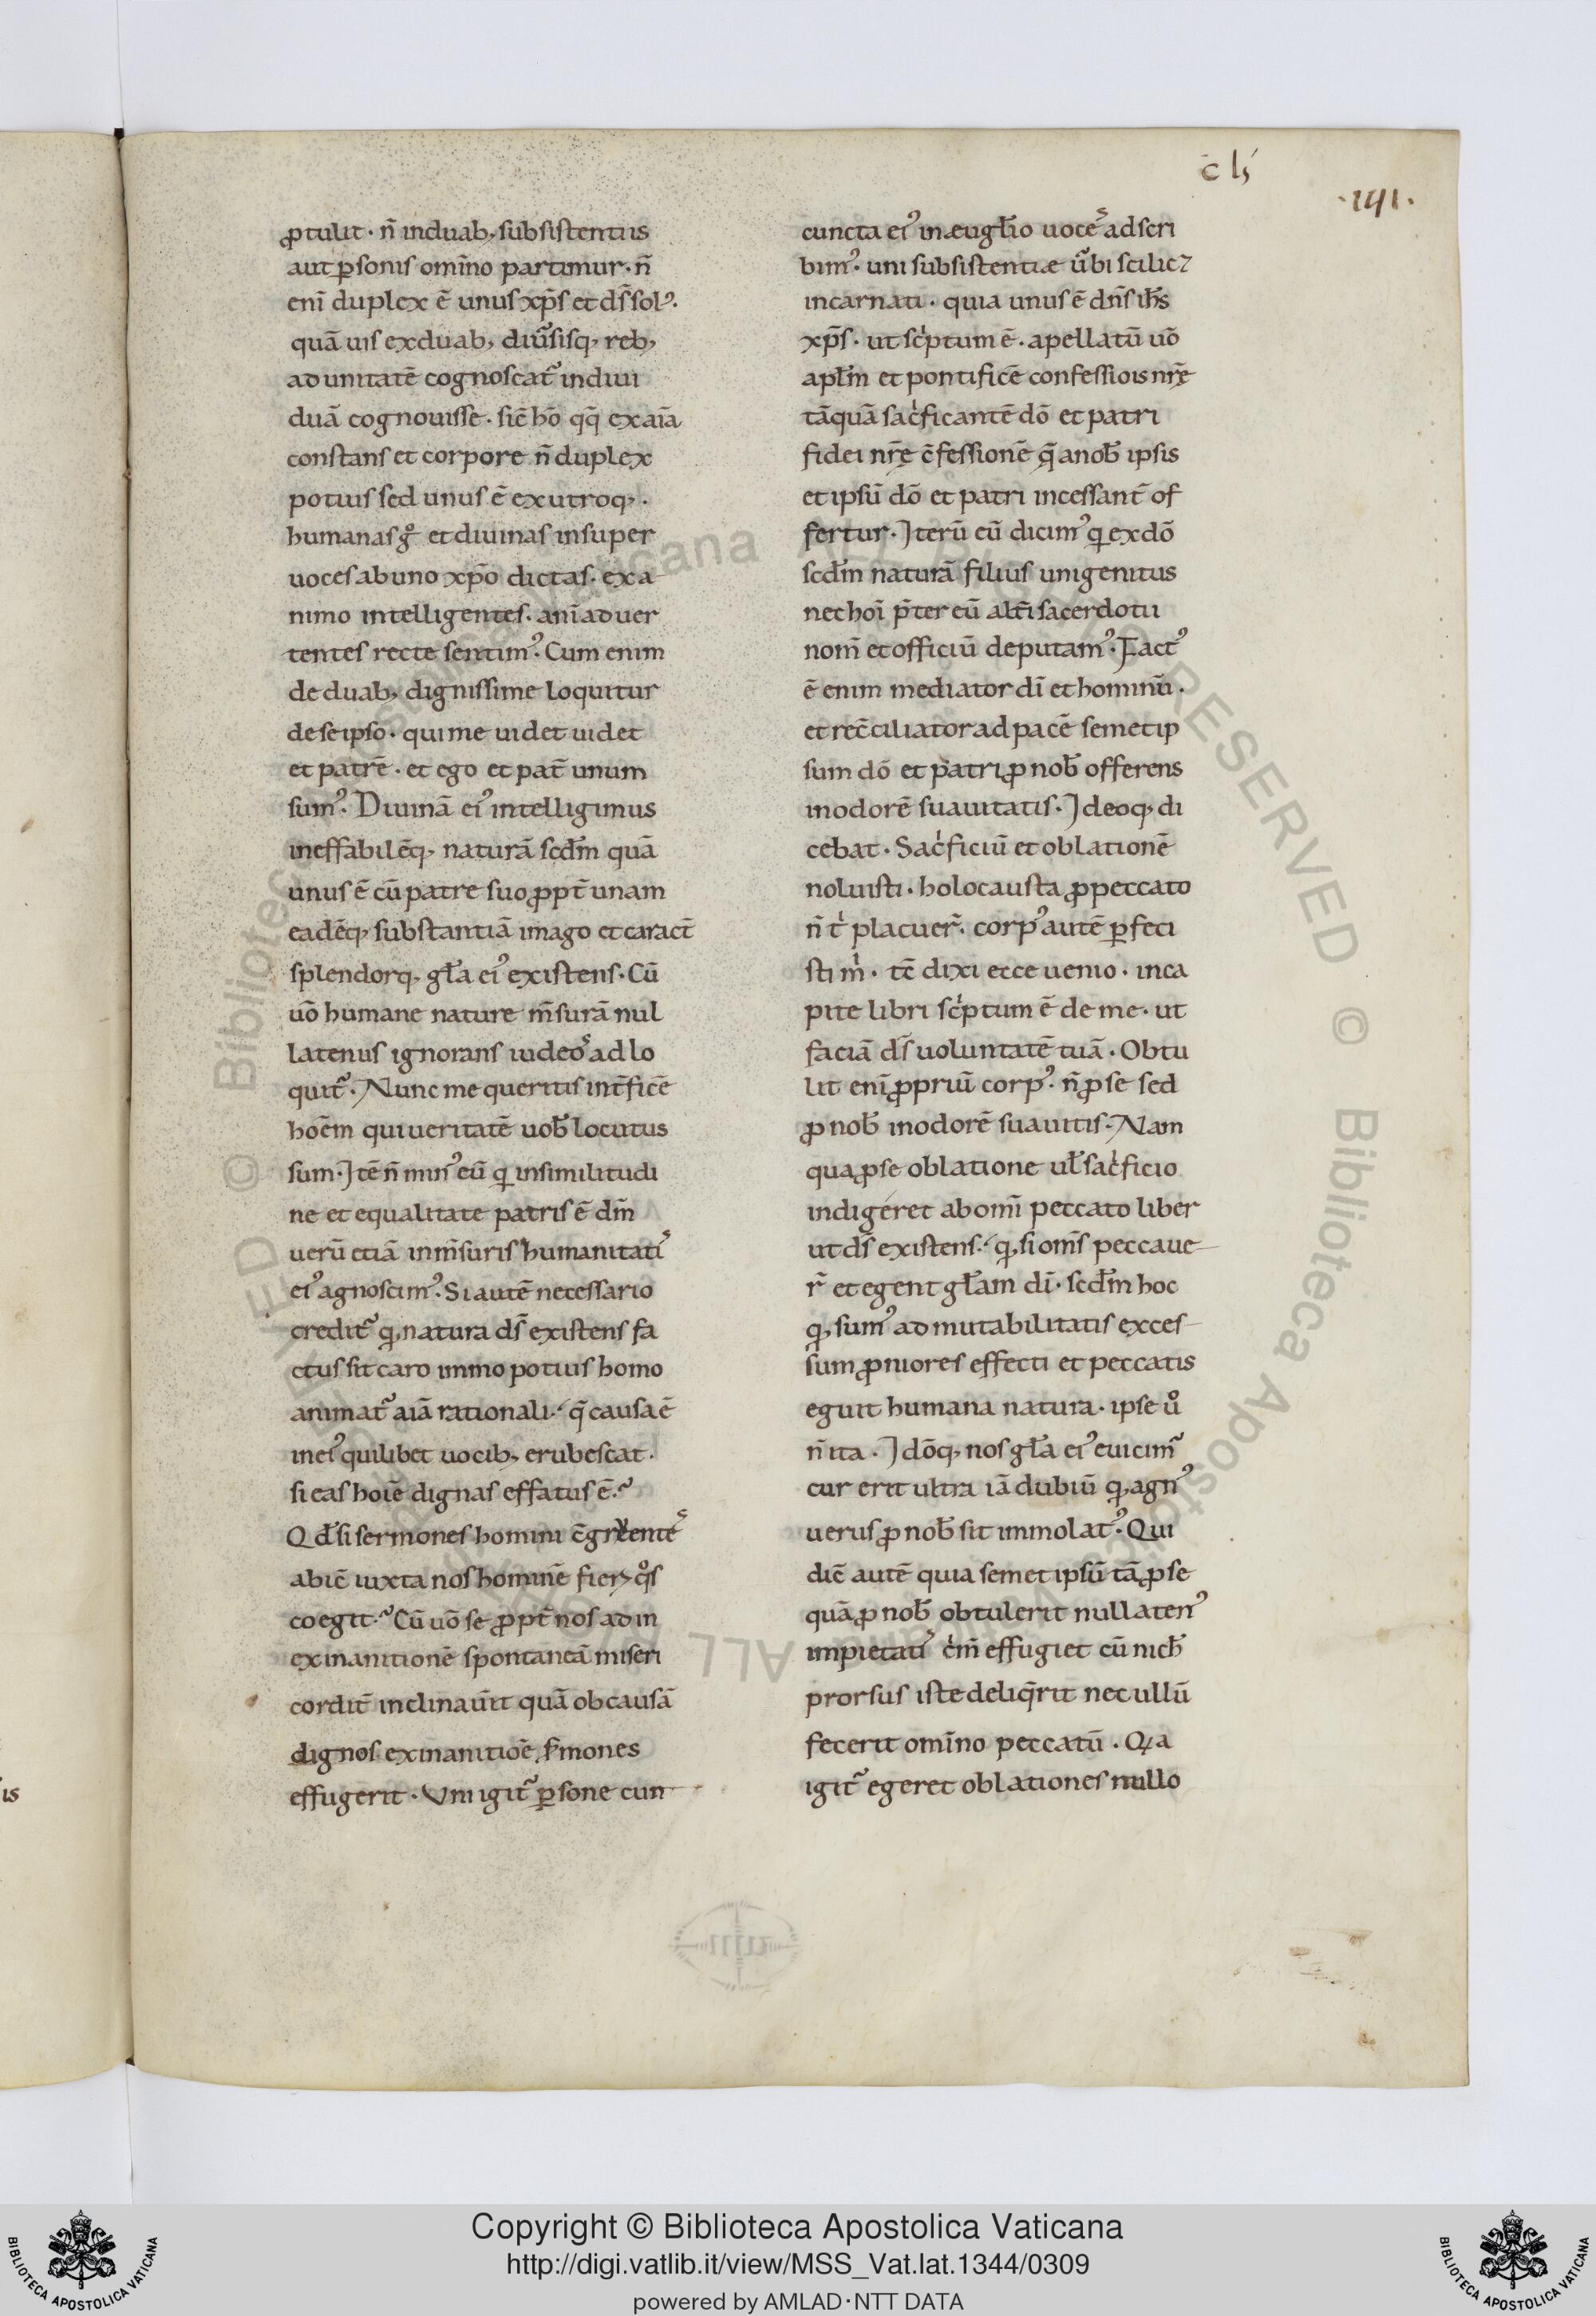 c̄ lꝫ
·141·
ꝓtulit · n̄ in duabꝫ subsistentiis
aut ꝑsonis omīno partimur · n̄
enī duplex ē unus xp̄s et dn̄s sol᾽ ·
quā uis ex duabꝫ diũsisqꝫ rebꝫ
ad unitatē cognoscat᷑ indiui
duā cognouisse · sic̄ hō qq̄ ex aīa
constans et corpore n̄ duplex
potius sed unus ē ex utroqꝫ ·
humanas gͦ et diuinas insuper
uoces ab uno xp̄o dictas · ex a
nimo intelligentes · anīaduer
tentes recte sentim᾽ · Cum enim
de duabꝫ dignissime loquitur
de se ipso · qui me uidet uidet
et patrē · et ego et pat̄ unum
sum᾽ · Diuinā ei᾽ intelligimus
ineffabilēqꝫ naturā scd̄m quā
unus ē cū patre suo ꝓpt̄ unam
eadēqꝫ substantiā imago et caract̄
splendorqꝫ gl̄a ei᾽ existens · Cū
uō humane nature m̄surā nul
latenus ignorans iudeoˢ adlo
quit᷑ · Nunc me queritis int̄ficē
hoēm qui ueritatē uob̄ locutus
sum · Itē n̄ min᾽ eū q̄ in similitudi
ne et equalitate patris ē dm̄
uerū etiā in m̄suris humanitatiˢ
ei᾽ agnoscim᾽ · Si autē necessario
credit᷑ qꝫ natura ds̄ existens fa
ctus sit caro immo potius homo
animat᷑ aīā rationali · q̄ causa ē
in ei᾽ quilibet uocibꝫ erubescat ·
si eas hoīē dignas effatus ē ·
Qd̄ si sermones homini c̄gruenteˢ
abic̄ iuxta nos hominē fieri qͦs
coegit · Cū uō se ꝓpt̄ nos ad in
exinanitionē spontaneā miseri
cordit̄ inclinaũit quā ob causā
dignos exinanitiōē ẜmones
effugerit · Uni igit᷑ ꝑsone cun
cuncta ei᾽ in æugl̄io uoceˢ adscri
bim᾽ · uni subsistentiæ ũbi scilicꝫ
incarnati · quia unus ē dn̄s ih̄s
xp̄s · ut scͥptum ē · apellatū uō
apl̄m et pontificē confessiois nr̄ę
tāquā sacͥficantē dō et patri
fidei nr̄ę c̄fessionē q̄ a nob̄ ipsis
et ipsū dō et patri incessant̄ of
fertur · Iterū eū dicim᾽ q̄ ex dō
scd̄m naturā filius unigenitus
nec hoī p̄ter eū alt̄i sacerdotii
nom̄ et officiū deputam᾽ · Fact᾽
ē enim mediator dī et hominū ·
et rec̄ciliator ad pacē semet ip
sum dō et patri ꝓ nob̄ offerens
in odorē suauitatis · Ideoqꝫ di
cebat · Sacͥficiū et oblationē
noluisti · holocausta ꝓ peccato
n̄ tͥ placuer̄ · corp᾽ autē ꝑfeci
sti mͥ · tc̄ dixi ecce uenio · in ca
pite libri scͥptum ē de me · ut
faciā ds̄ uoluntatē tuā · Obtu
lit enī ꝓpriū corp᾽ · n̄ ꝓ se sed
ꝓ nob̄ in odorē suauitis · Nam
qua ꝓ se oblatione ul̄ sacͥficio
indigeret ab omī peccato liber
ut ds̄ existens · qꝫ si om̄s peccaue
r̄ et egent gl̄am dī · scd̄m hoc
qꝫ sum᾽ ad mutabilitatis exces
sum ꝓniores effecti et peccatis
eguit humana natura · ipse uͦ
n̄ ita · Idōqꝫ nos gl̄a ei᾽ euicim᷑
cur erit ultra iā dubiū qꝫ agn᾽
uerus ꝓ nob̄ sit immolat᾽ · Qui
dic̄ autē quia semet ipsū tā ꝓ se
quā ꝓ nob̄ obtulerit nullaten᾽
impietatiˢ cͥm̄ effugiet cū nich̄
prorsus iste deliq̄rit nec ullū
fecerit omīno peccatū · Qa
igit᷑ egeret oblationes nullo
is
Copyright © Biblioteca Apostolica Vaticana
http://digi.vatlib.it/view/MSS_Vat.lat.1344/0309
powered by AMLAD·NTT DATA